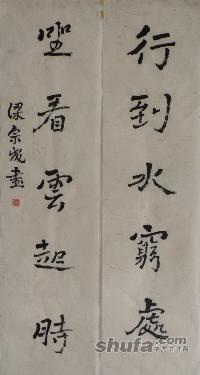 行到水窮處
坐看雲起時
梁宗岱書
shufa.com